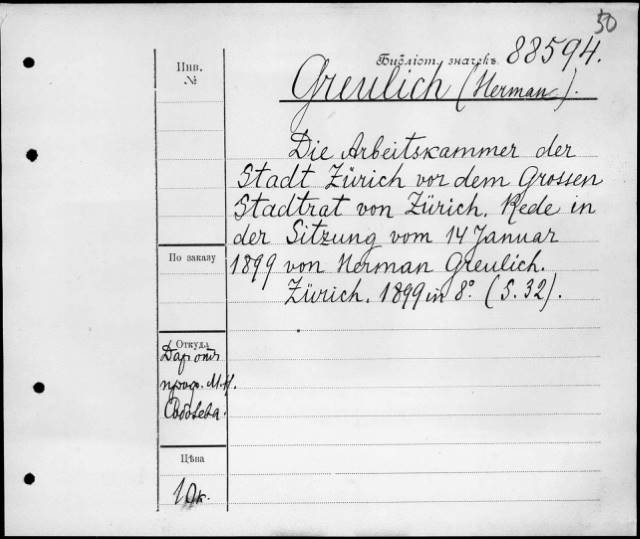 50
Инв.
№
Библіот. значекъ 88594.
Greulich (Herman).
Die Arbeitskammer der
Stadt Zürich vor dem Grossen
Stadtrat von Zürich. Rede in
der Sitzung vom 14 Januar
1899 von Herman Greulich.
Zürich. 1899 in 8º. (S. 32).
По заказу
Откуд.
Даръ отъ
проф. М.Н.
Соболева.
Цѣна
10к.